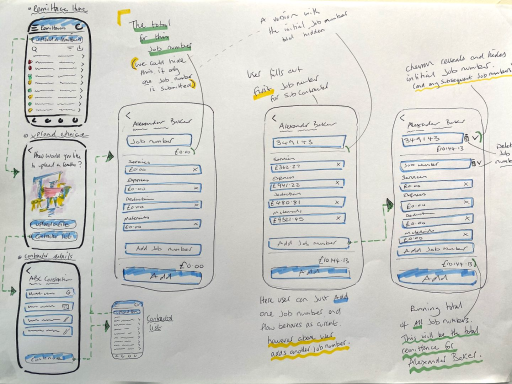 Remittance
Upload choice
How would you like to upload a
ABC Construction
Contractor list
The total
for this
Job number
(we could hide
this if only
one Job number
is submitted)
Alexander Baker
Job number
£0.00
Services
£0.00 x
Expenses
£0.00 x
Deductions
£0.00 x
Materials
£0.00 x
Add Job number
£0.00
Add
A version with
the initial Job number
but hidden
User fills out
First Job number
for Subcontractor
Alexander Baker
349143
£10144.13
Services
x
Expenses
£941.23 x
£480.81 x
Materials
x
Add Job number
£10144.13
Add
Here user can just Add
one Job number and
flow behaves as current
however above user
adds another Job number.
chevron reveals and hides
initial Job number
(and any subsequent Job numbers)
Alexander Baker
349143
£10144.13
Job number
Services
£0.00 x
Expenses
£0.00 x
£0.00 x
Materials
£0.00 x
Add Job number
£10144.13
Add
Job
Running total
of All Job numbers.
This will be the total
remittance for
Alexander Baker.